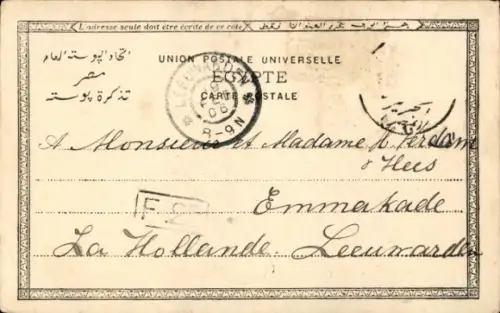 L'adresse seule doit être écrite de ce côté
UNION POSTALE UNIVERSELLE
اتحاد البوستة العام
EGYPTE
مصر
CARTE POSTALE
تذكرة بوستة
LEEUWARDEN
8-9N
A Monsieur et Madame H. Verdam
& Hees
F
Emmakade
La Hollande. Leeuwarden